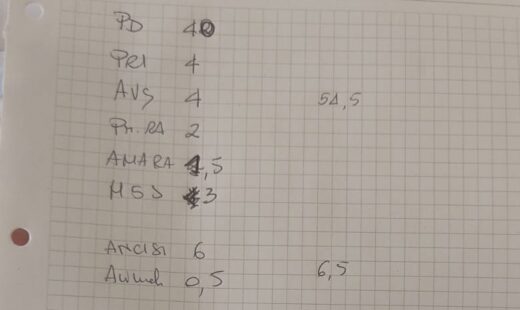 PD 40
PRI 4
AVS 4 54,5
Pr.RA 2
AMARA 1,5
M5S 3
ANCISI 6
0,5 6,5